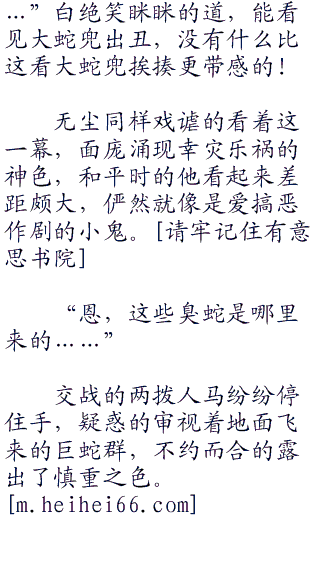 …”白绝笑眯眯的道，能看
见大蛇兜出丑，没有什么比
这看大蛇兜挨揍更带感的！
　　无尘同样戏谑的看着这
一幕，面庞涌现幸灾乐祸的
神色，和平时的他看起来差
距颇大，俨然就像是爱搞恶
作剧的小鬼。[请牢记住有意
思书院]
　　“恩，这些臭蛇是哪里
来的……”
　　交战的两拨人马纷纷停
住手，疑惑的审视着地面飞
来的巨蛇群，不约而合的露
出了慎重之色。
[m.heihei66.com]